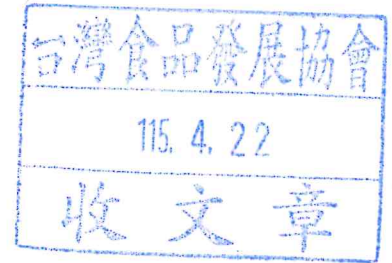 台灣食品發展協會
115. 4. 22
收文章